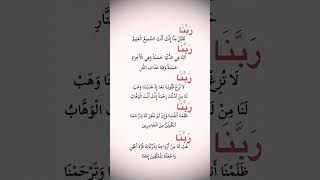 رَبَّنَا
تَقَبَّلْ مِنَّا إِنَّكَ أَنْتَ السَّمِيعُ الْعَلِيمُ
رَبَّنَا
آتِنَا فِي الدُّنْيَا حَسَنَةً وَفِي الْآخِرَةِ
حَسَنَةً وَقِنَا عَذَابَ النَّارِ
رَبَّنَا
لَا تُزِغْ قُلُوبَنَا بَعْدَ إِذْ هَدَيْتَنَا وَهَبْ
لَنَا مِنْ لَدُنْكَ رَحْمَةً إِنَّكَ أَنْتَ الْوَهَّابُ
رَبَّنَا
ظَلَمْنَا أَنْفُسَنَا وَإِنْ لَمْ تَغْفِرْ لَنَا وَتَرْحَمْنَا
لَنَكُونَنَّ مِنَ الْخَاسِرِينَ
رَبَّنَا
هَبْ لَنَا مِنْ أَزْوَاجِنَا وَذُرِّيَّاتِنَا قُرَّةَ أَعْيُنٍ
وَاجْعَلْنَا لِلْمُتَّقِينَ إِمَامًا